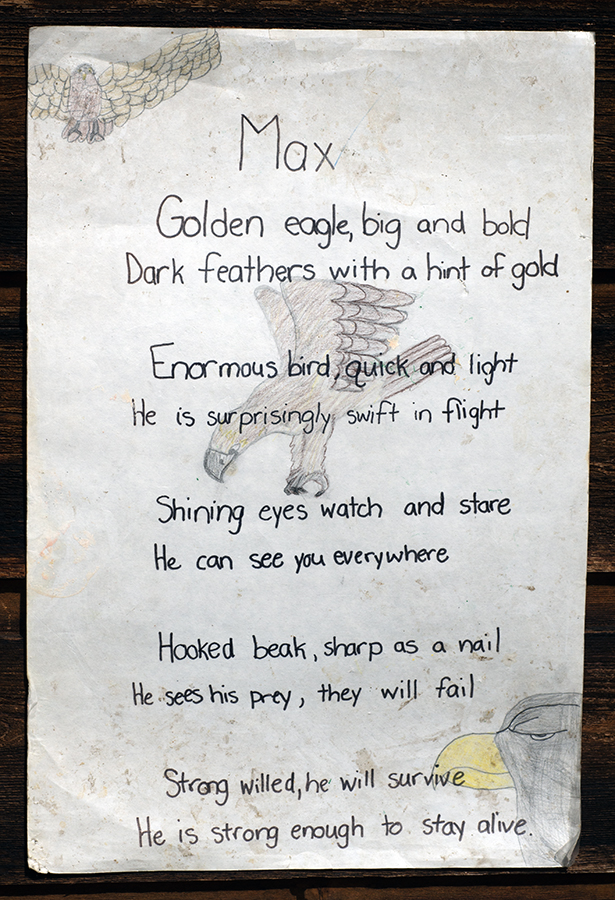 Max
Golden eagle, big and bold
Dark feathers with a hint of gold
Enormous bird, quick and light
He is surprisingly swift in flight
Shining eyes watch and stare
He can see you everywhere
Hooked beak, sharp as a nail
He sees his prey, they will fail
Strong willed, he will survive
He is strong enough to stay alive.